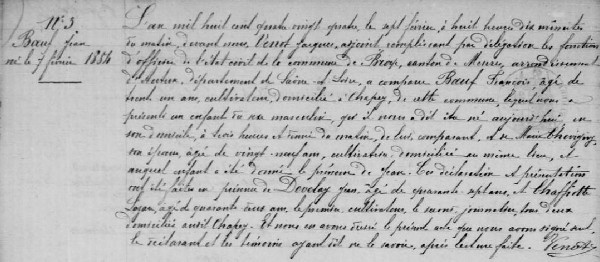 N° 3
Bauf Jean
né le 7 février 1884
L'an mil huit cent quatre vingt quatre, le sept février, à huit heures dix minutes
du matin, devant nous, Venot Jacques, adjoint, remplissant par délégation les fonctions
d'officier de l'état civil de la commune de Broye, canton de Mesvres, arrondissement
d'Autun, département de Saône et Loire, a comparu Bauf François, âgé de
trente un ans, cultivateur, domicilié à Chapey, de cette commune, lequel nous a
présenté un enfant du sexe masculin, qu'il nous a dit être né aujourd'hui, en
son domicile, à trois heures du matin, de lui, comparant, et de Marie
son épouse, âgée de vingt-neuf ans, cultivatrice, domiciliée au même lieu, et
auquel enfant a été donné le prénom de Jean. Ces déclaration et présentation
ont été faites en présence de Jean, âgé de quarante sept ans, et
Lazare, âgé de quarante trois ans, le premier, cultivateur, le second, journalier, tous deux
domiciliés audit Chapey. Et nous en avons dressé le présent acte que nous avons signé seul,
le déclarant et les témoins ayant dit ne le savoir, après lecture faite. Venot